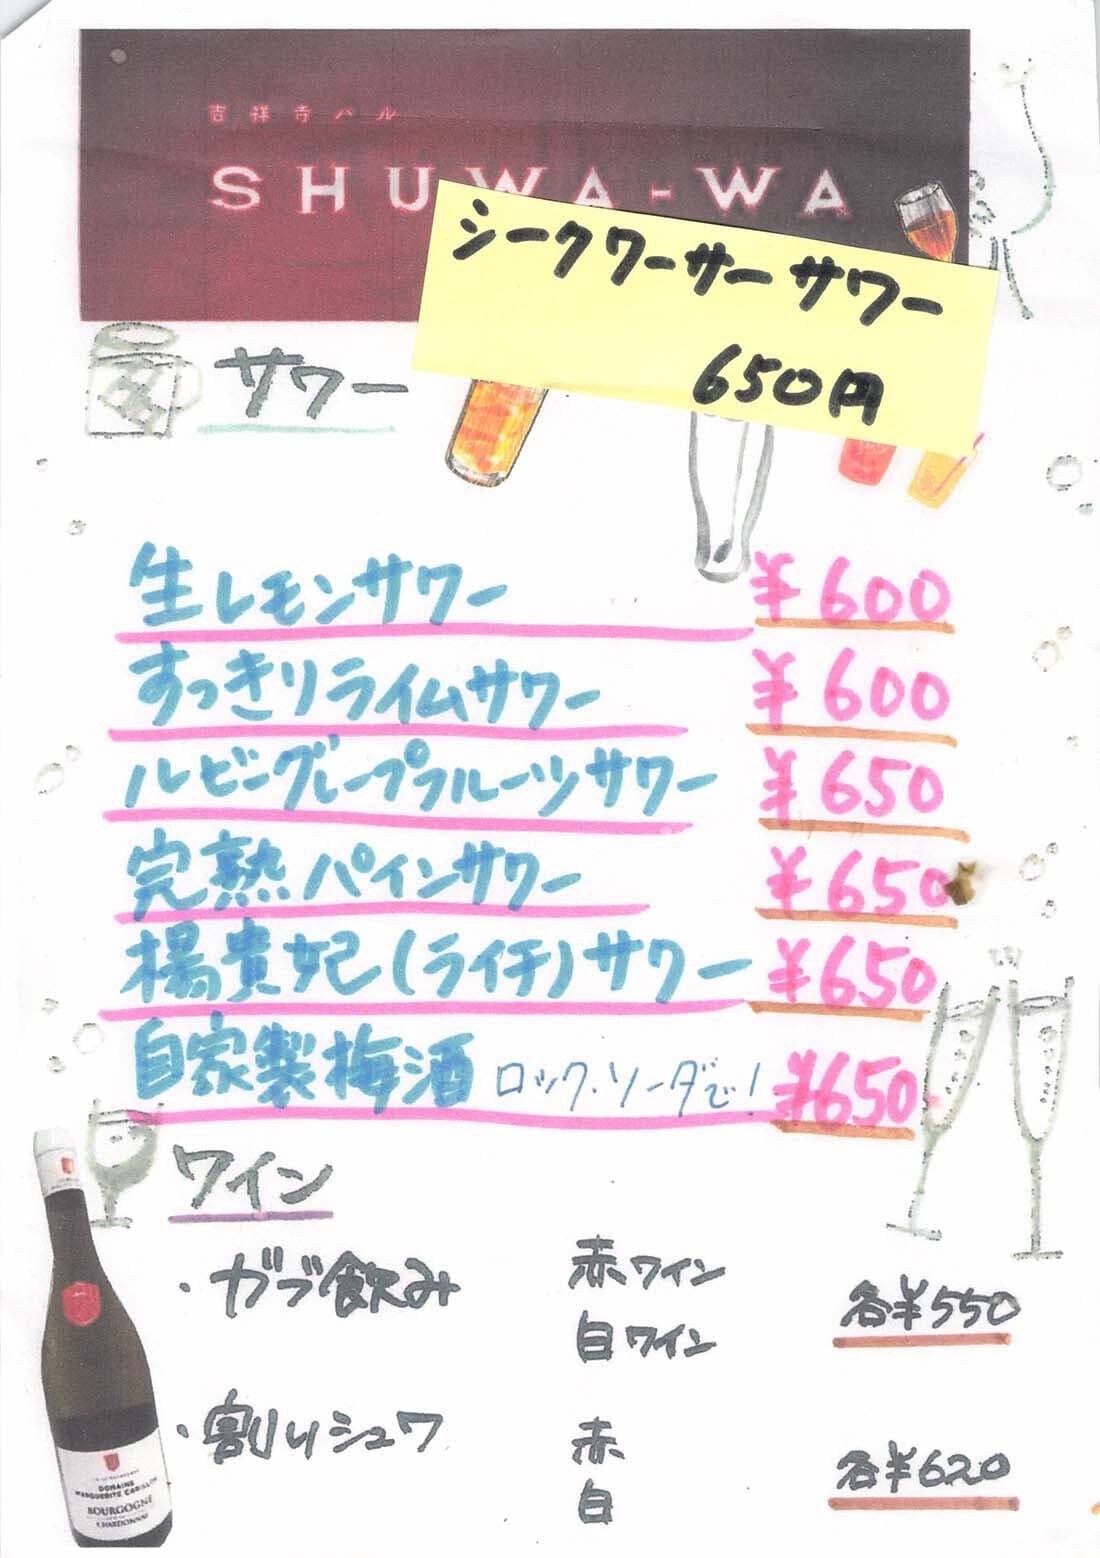 吉祥寺バル
SHUWA-WA
シークワーサーサワー
650円
サワー
生レモンサワー ¥600
すっきりライムサワー ¥600
ルビーグレープフルーツサワー ¥650
完熟パインサワー ¥650
楊貴妃(ライチ)サワー ¥650
自家製梅酒 ロック・ソーダで! ¥650
ワイン
・ガブ飲み 赤ワイン
白ワイン 各¥550
・割りシュワ 赤
白 各¥620
DOMAINE
MARGUERITE CARILLON
BOURGOGNE
CHARDONNAY